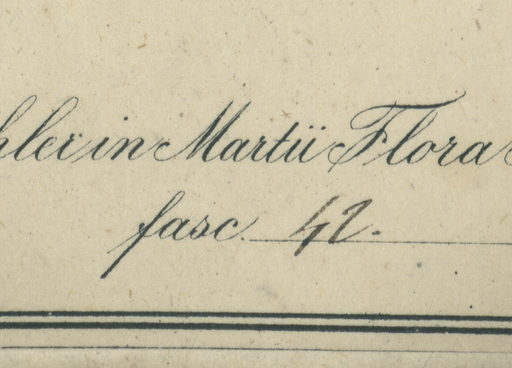 hleï in Martii Flora
fasc. 42.